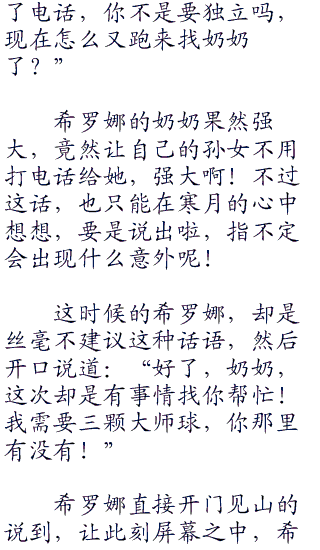 了电话，你不是要独立吗，
现在怎么又跑来找奶奶
了？”
希罗娜的奶奶果然强
大，竟然让自己的孙女不用
打电话给她，强大啊！不过
这话，也只能在寒月的心中
想想，要是说出啦，指不定
会出现什么意外呢！
这时候的希罗娜，却是
丝毫不建议这种话语，然后
开口说道：“好了，奶奶，
这次却是有事情找你帮忙！
我需要三颗大师球，你那里
有没有！”
希罗娜直接开门见山的
说到，让此刻屏幕之中，希